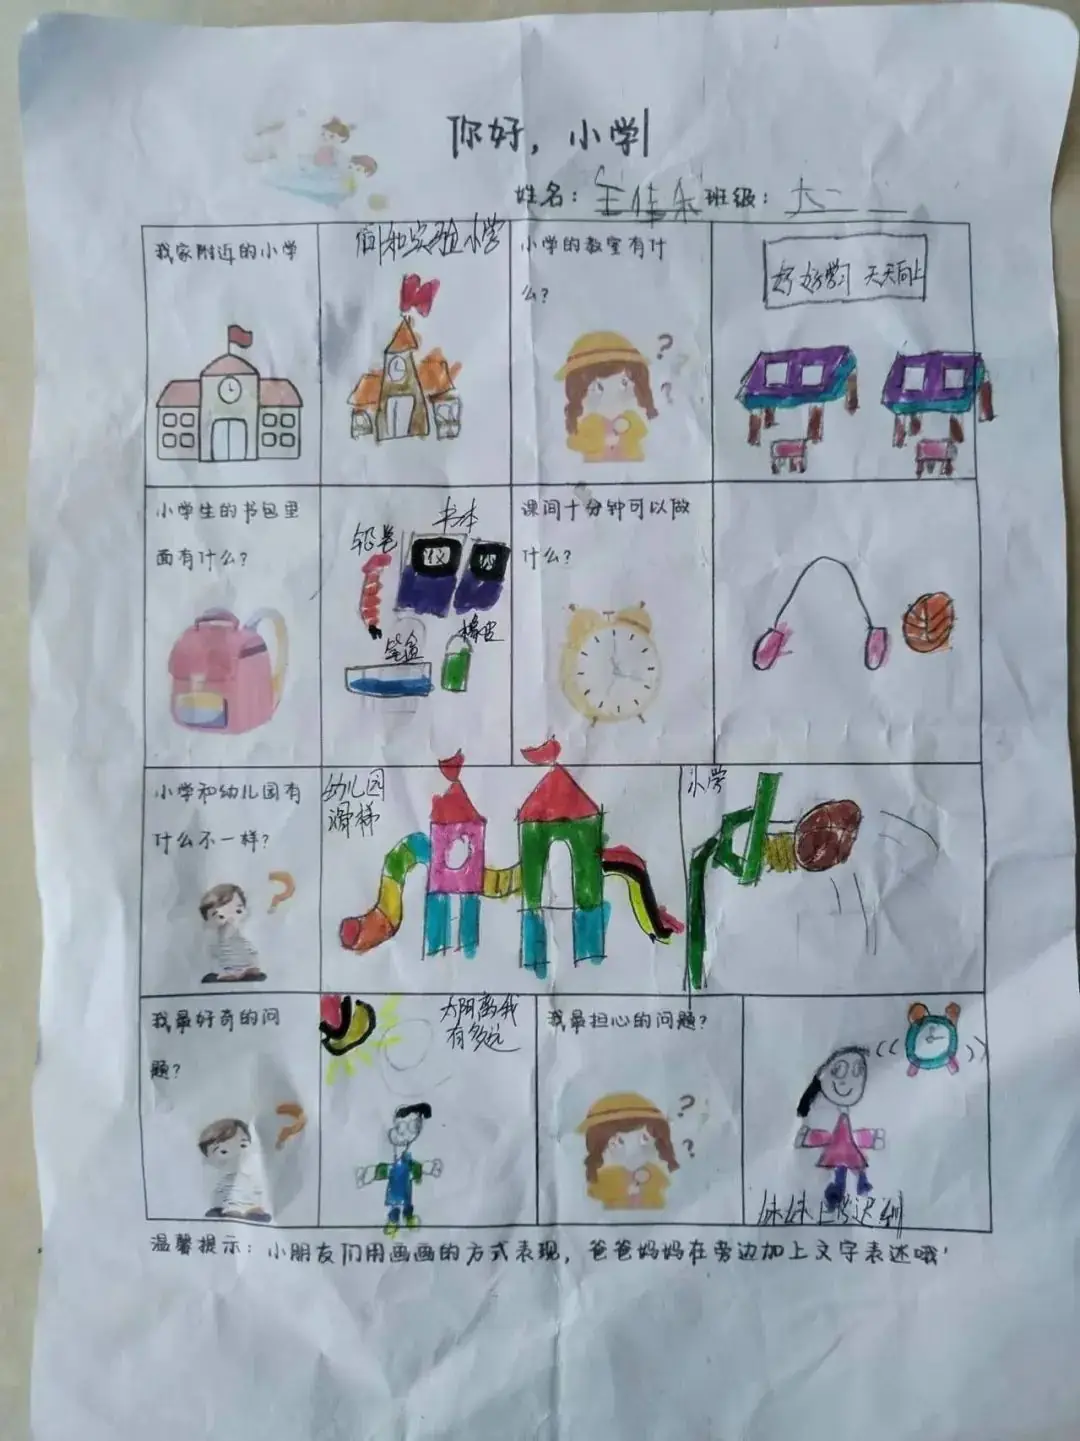 你好，小学
姓名：王佳 班级：大二
我家附近的小学
实验小学
小学的教室有什
么？
好好学习 天天向上
小学生的书包里
面有什么？
铅笔
书本
笔盒
橡皮
课间十分钟可以做
什么？
小学和幼儿园有
什么不一样？
幼儿园
滑梯
小学
我最好奇的问
题？
太阳离我
有多远
我最担心的问题？
妹妹上学迟到
温馨提示：小朋友们用画画的方式表现，爸爸妈妈在旁边加上文字表达哦！